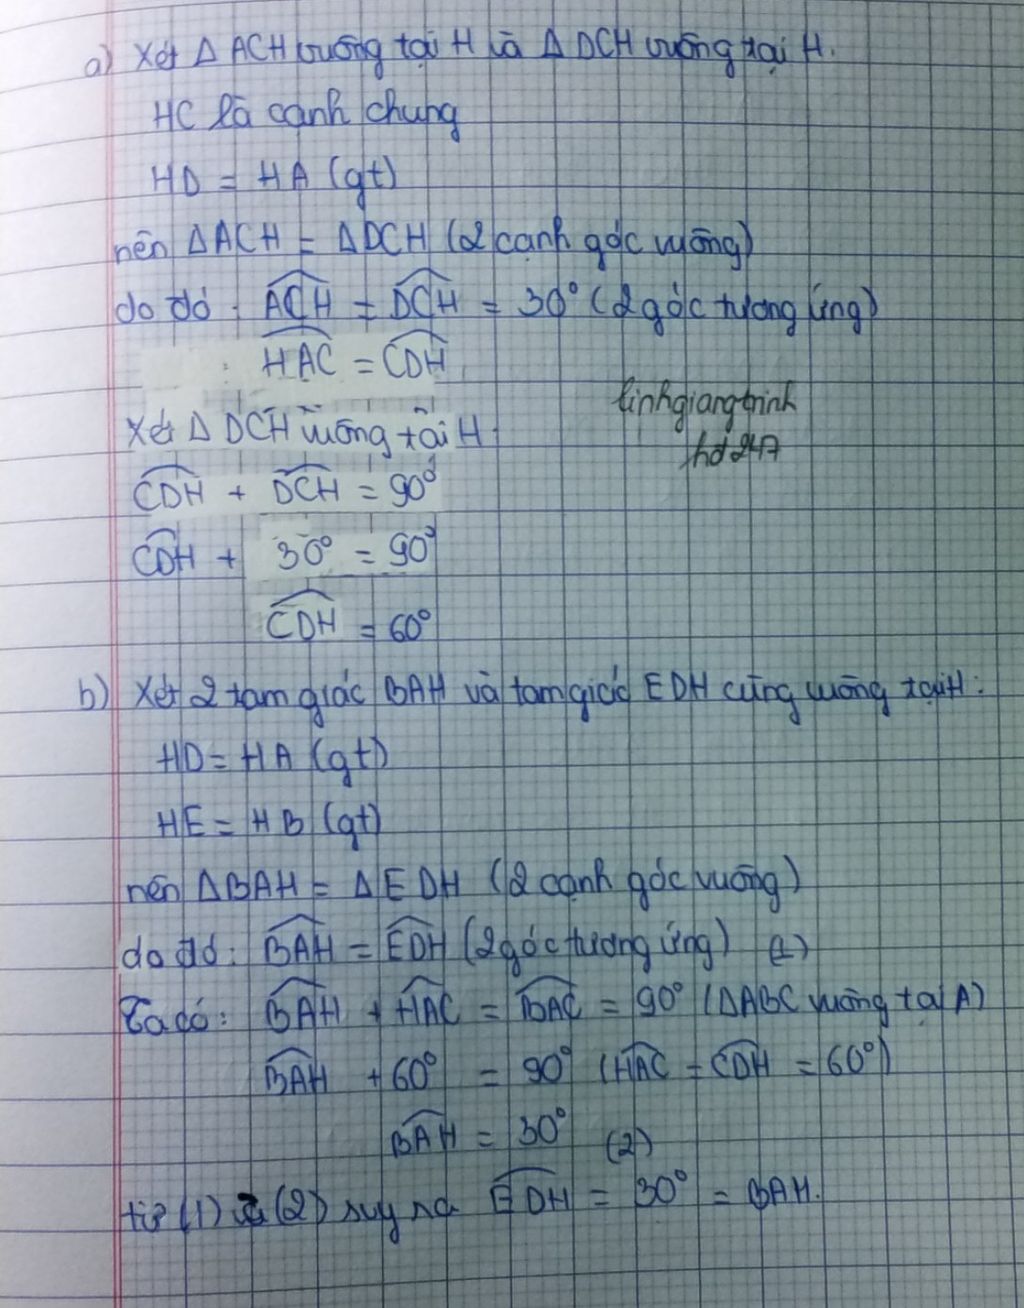 a) Xét Δ ACH vuông tại H và Δ DCH vuông tại H.
HC là cạnh chung
HD = HA (gt)
nên ΔACH = ΔDCH (2 cạnh góc vuông)
do đó : \widehat{ACH} = \widehat{DCH} = 30° (2 góc tương ứng)
: \widehat{HAC} = \widehat{CDH}
linhgiangtrinh
hd 24A
Xét Δ DCH vuông tại H:
\widehat{CDH} + \widehat{DCH} = 90°
\widehat{CDH} + 30° = 90°
\widehat{CDH} = 60°
b) Xét 2 tam giác BAH và tam giác EDH cùng vuông tại H:
HD = HA (gt)
HE = HB (gt)
nên ΔBAH = ΔEDH (2 cạnh góc vuông)
do đó: \widehat{BAH} = \widehat{EDH} (2 góc tương ứng) (1)
Ta có: \widehat{BAH} + \widehat{HAC} = \widehat{BAC} = 90° (ΔABC vuông tại A)
\widehat{BAH} + 60° = 90° (\widehat{HAC} = \widehat{CDH} = 60°)
\widehat{BAH} = 30° (2)
từ (1) và (2) suy ra \widehat{EDH} = 30° = BAH.